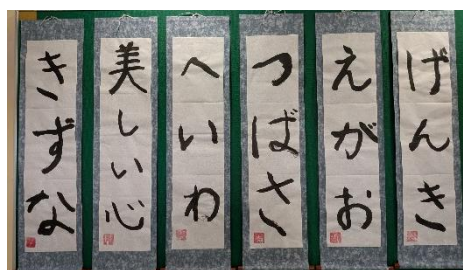 げんき
えがお
つばさ
へいわ
美しい心
きずな